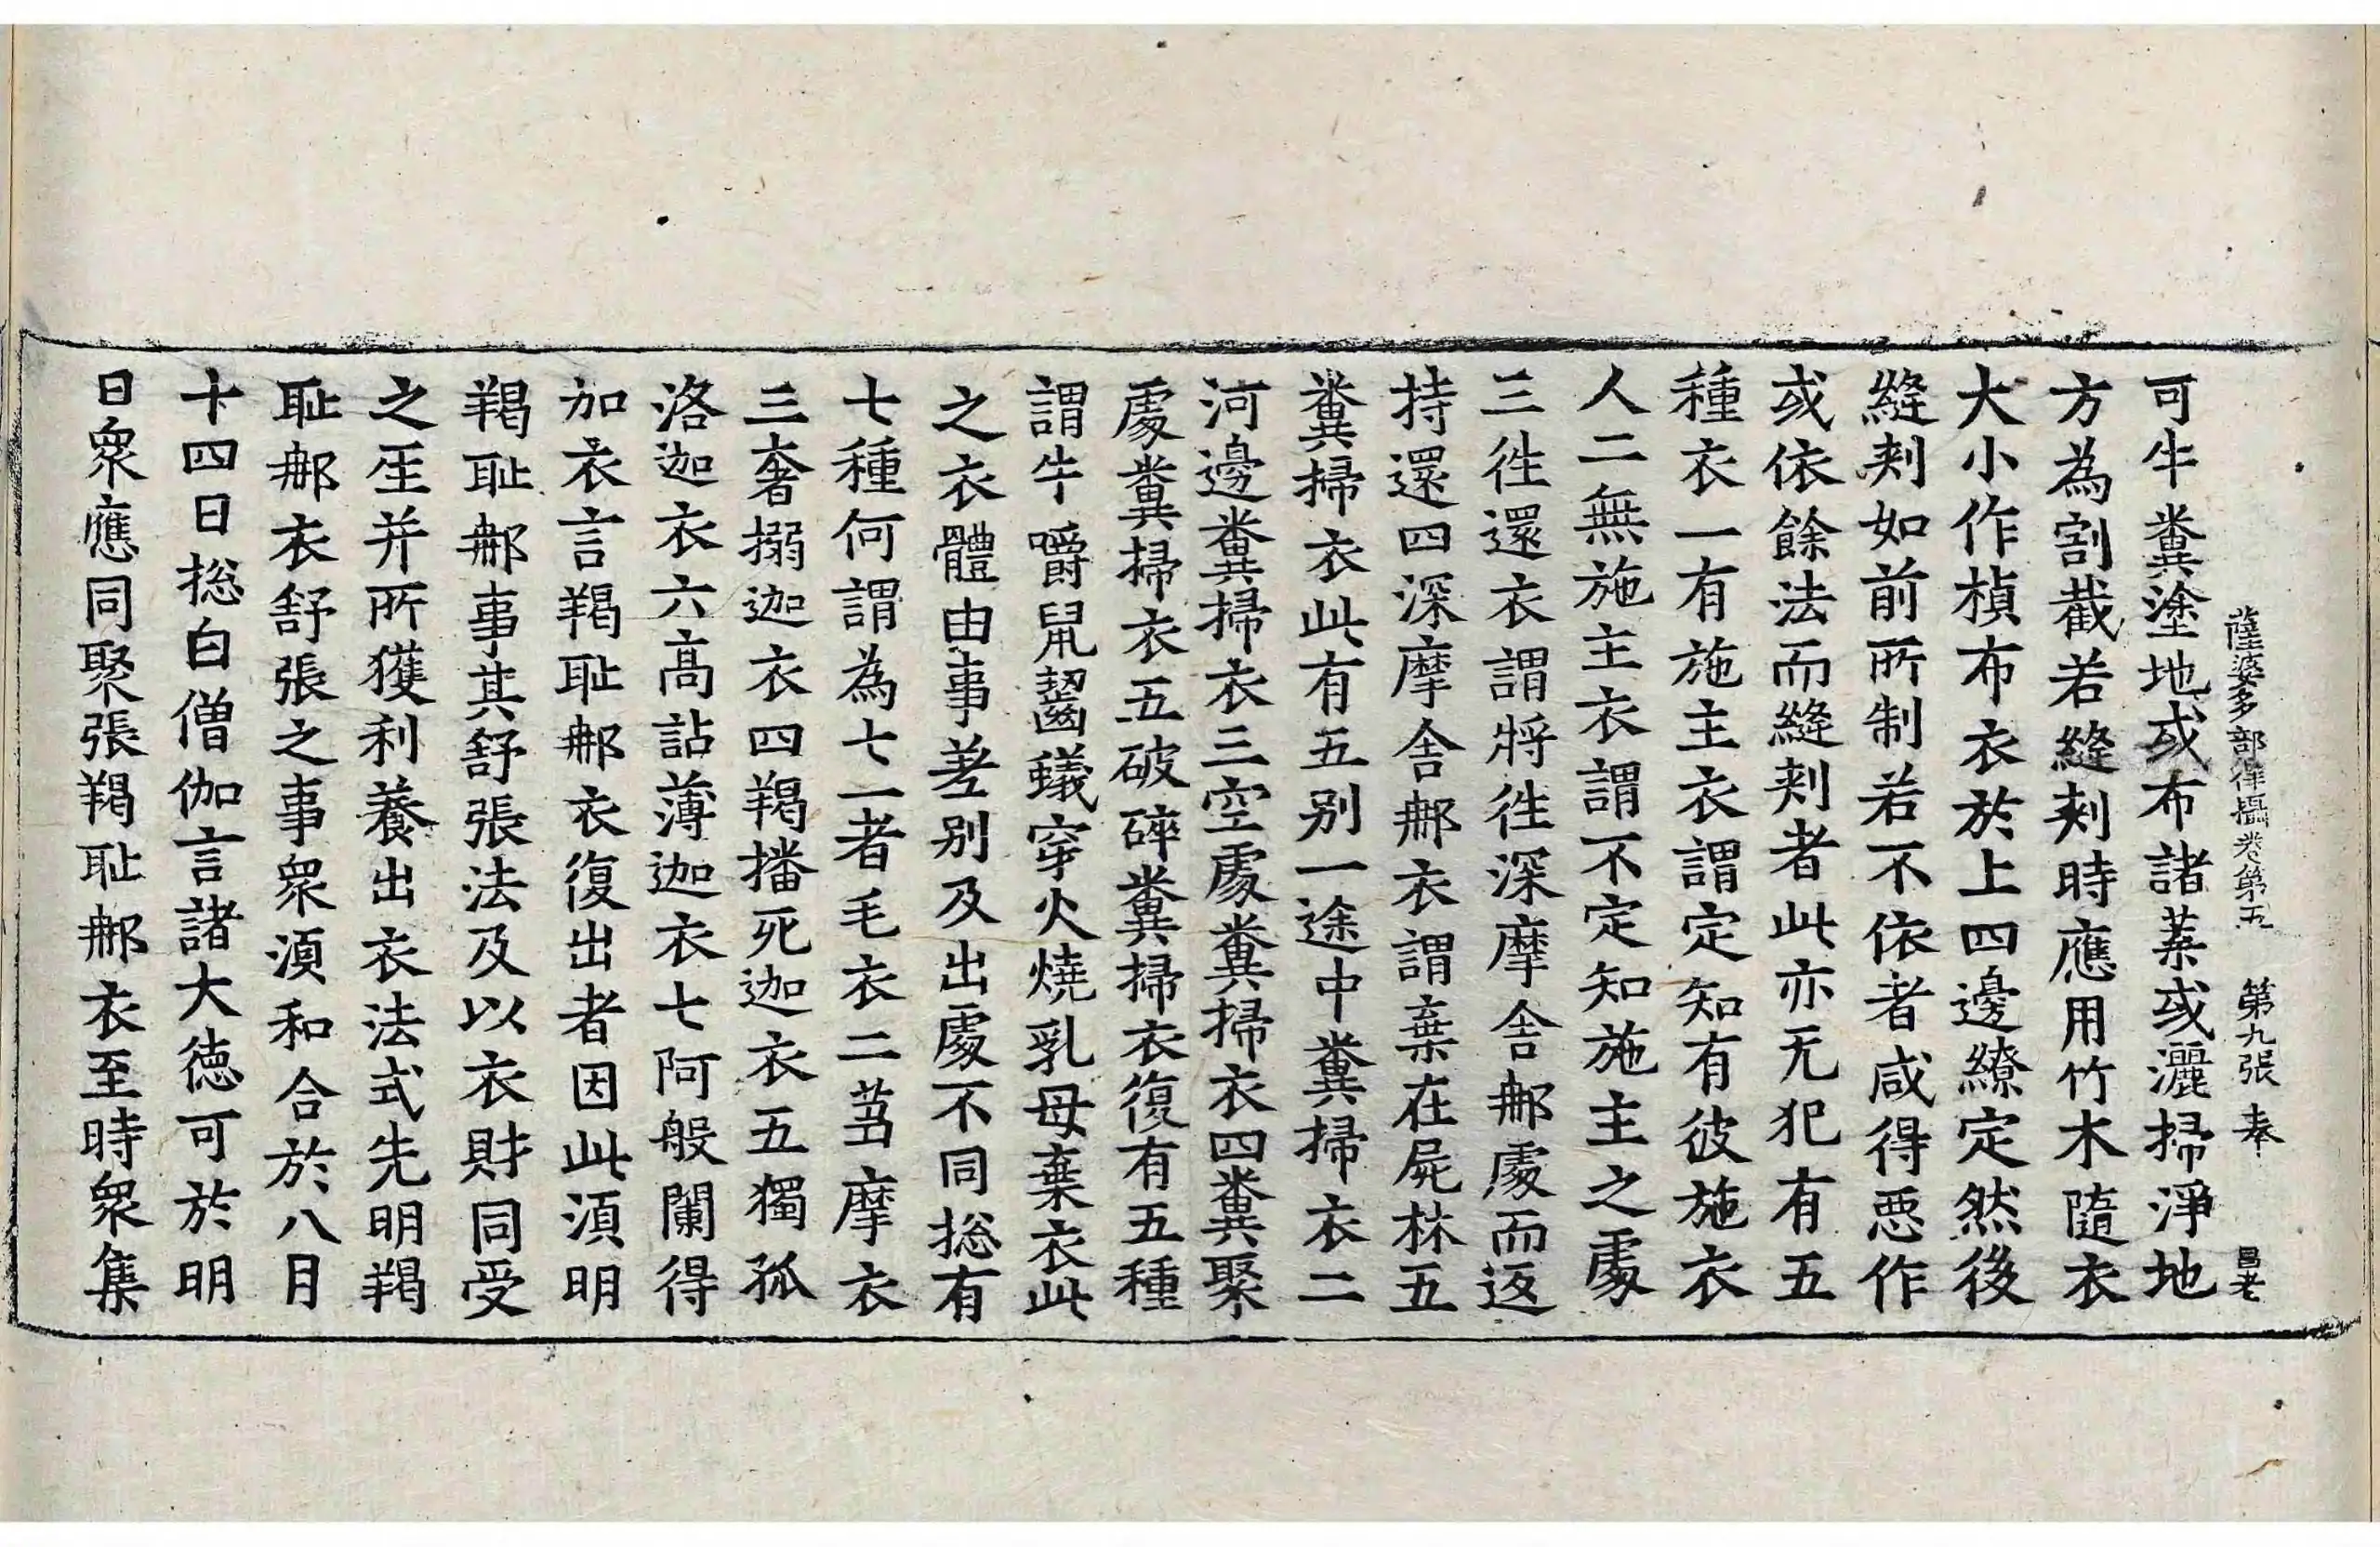 薩婆多部律攝卷第五 第九張 奉 昌老
可牛糞塗地或布諸葉或灑掃淨地
方為割截若縫刾時應用竹木隨衣
大小作楨布衣於上四邊繚定然後
縫刾如前所制若不依者咸得惡作
或依餘法而縫刾者此亦无犯有五
種衣一有施主衣謂定知有彼施衣
人二無施主衣謂不定知施主之處
三往還衣謂將往深摩舍郍處而返
持還四深摩舍郍衣謂棄在屍林五
糞掃衣此有五別一途中糞掃衣二
河邊糞掃衣三空處糞掃衣四糞聚
處糞掃衣五破碎糞掃衣復有五種
謂牛嚼鼠齧蟻穿火燒乳母棄衣此
之衣體由事差別及出處不同捴有
七種何謂為七一者毛衣二芻摩衣
三奢搦迦衣四羯播死迦衣五獨孤
洛迦衣六高詀薄迦衣七阿般闌得
加衣言羯恥郍衣復出者因此湏明
羯恥郍事其舒張法及以衣財同受
之㘴并所獲利養出衣法式先明羯
恥郍衣舒張之事眾湏和合於八月
十四日捴白僧伽言諸大德可於明
日眾應同聚張羯恥郍衣至時眾集